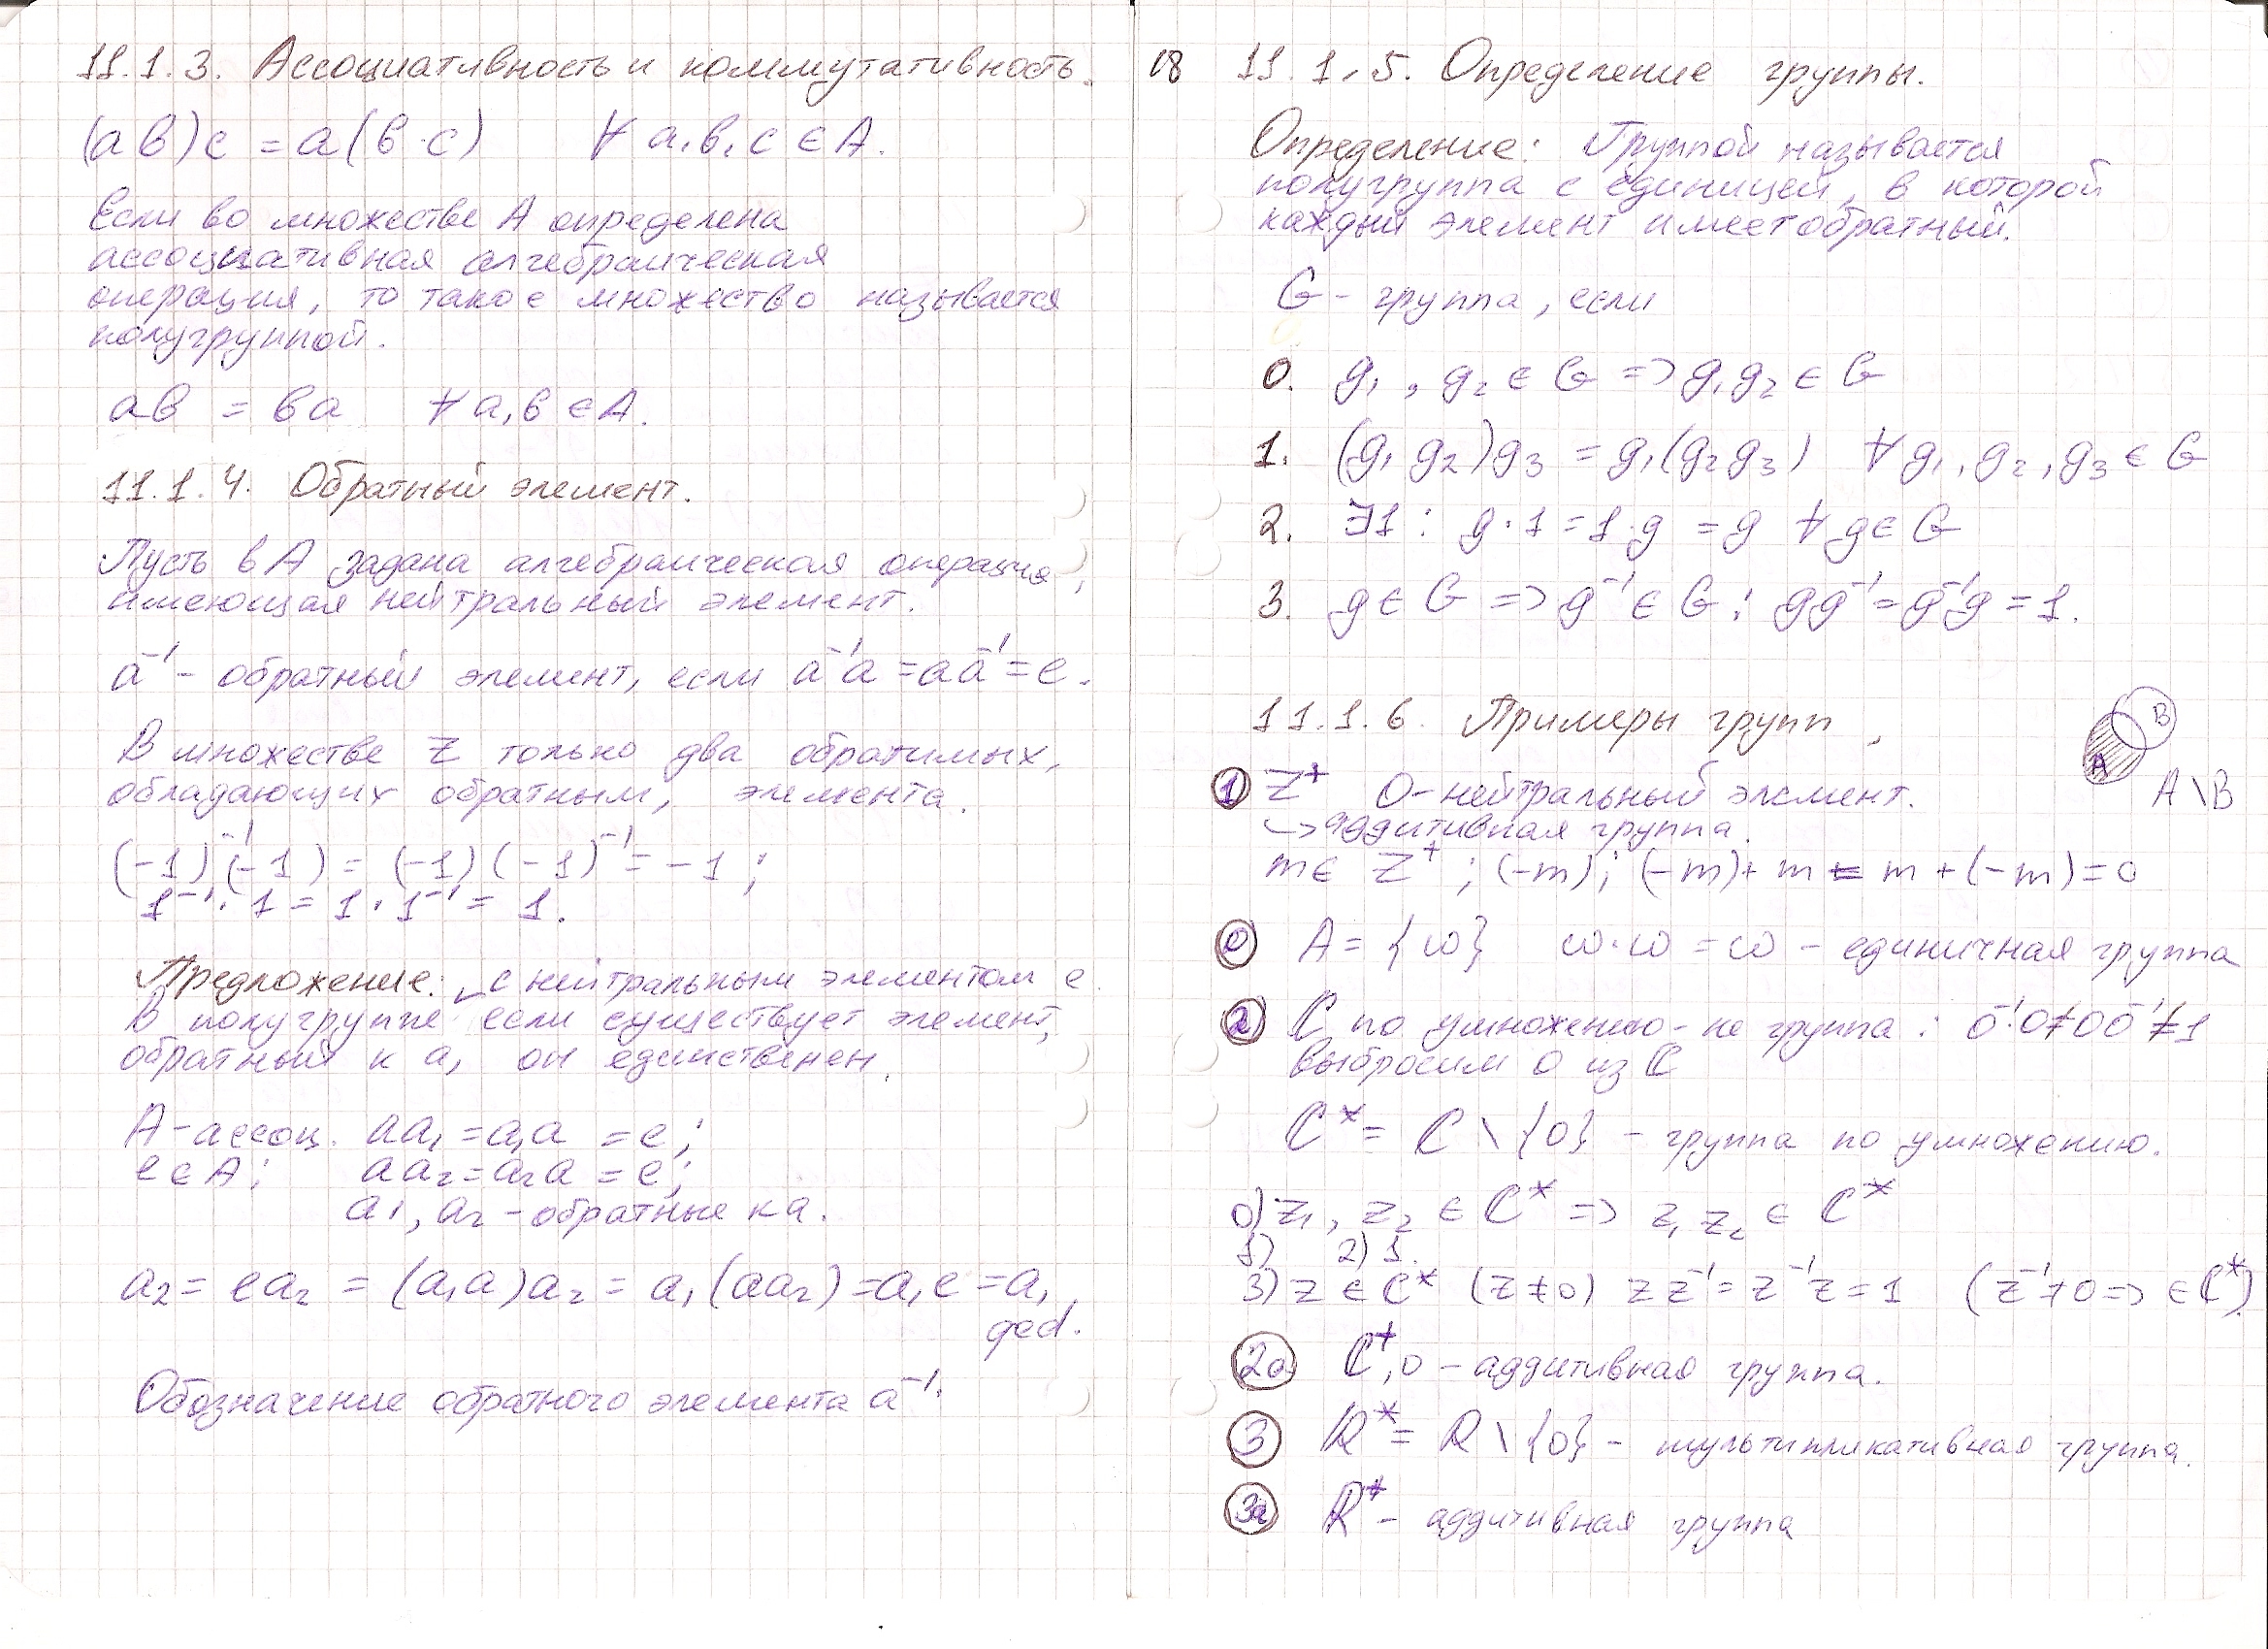 11.1.3. Ассоциативность и коммутативность.
(ab)c = a(b·c) ∀ a, b, c ∈ A.
Если во множестве A определена
ассоциативная алгебраическая
операция, то такое множество называется
полугруппой.
ab = ba ∀ a, b ∈ A.
11.1.4. Обратный элемент.
Пусть в A задана алгебраическая операция,
имеющая нейтральный элемент.
a⁻¹ - обратный элемент, если a⁻¹a = aa⁻¹ = e.
В множестве Z только два обратимых,
обладающих обратным, элемента.
(-1)⁻¹(-1) = (-1)(-1)⁻¹ = -1;
1⁻¹·1 = 1·1⁻¹ = 1.
Предложение: с нейтральным элементом e.
В полугруппе если существует элемент,
обратный к a, он единственен.
A - ассоц. aa₁ = a₁a = e;
e ∈ A; aa₂ = a₂a = e;
a₁, a₂ - обратные к a.
a₂ = ea₂ = (a₁a)a₂ = a₁(aa₂) = a₁e = a₁,
qed.
Обозначение обратного элемента a⁻¹.
18 11.1.5. Определение группы.
Определение: Группой называется
полугруппа с единицей, в которой
каждый элемент имеет обратный.
G - группа, если
0. g₁, g₂ ∈ G => g₁g₂ ∈ G
1. (g₁g₂)g₃ = g₁(g₂g₃) ∀ g₁, g₂, g₃ ∈ G
2. ∃1 : g·1 = 1·g = g ∀ g ∈ G
3. g ∈ G => g⁻¹ ∈ G : gg⁻¹ = g⁻¹g = 1.
11.1.6. Примеры групп.
B
A
A \ B
① Z⁺ 0 - нейтральный элемент.
↪ аддитивная группа.
m ∈ Z⁺; (-m); (-m) + m = m + (-m) = 0
⓪ A = {ω} ω·ω = ω - единичная группа
② ℂ по умножению - не группа : 0⁻¹·0 ≠ 00⁻¹ ≠ 1
выбросим 0 из ℂ
ℂ* = ℂ \ {0} - группа по умножению.
0) z₁, z₂ ∈ ℂ* => z₁z₂ ∈ ℂ*
1) 2) 1.
3) z ∈ ℂ* (z ≠ 0) zz⁻¹ = z⁻¹z = 1 (z⁻¹ ≠ 0 => ∈ ℂ*)
2a ℂ⁺, 0 - аддитивная группа.
③ ℝ* = ℝ \ {0} - мультипликативная группа.
3a ℝ⁺ - аддитивная группа